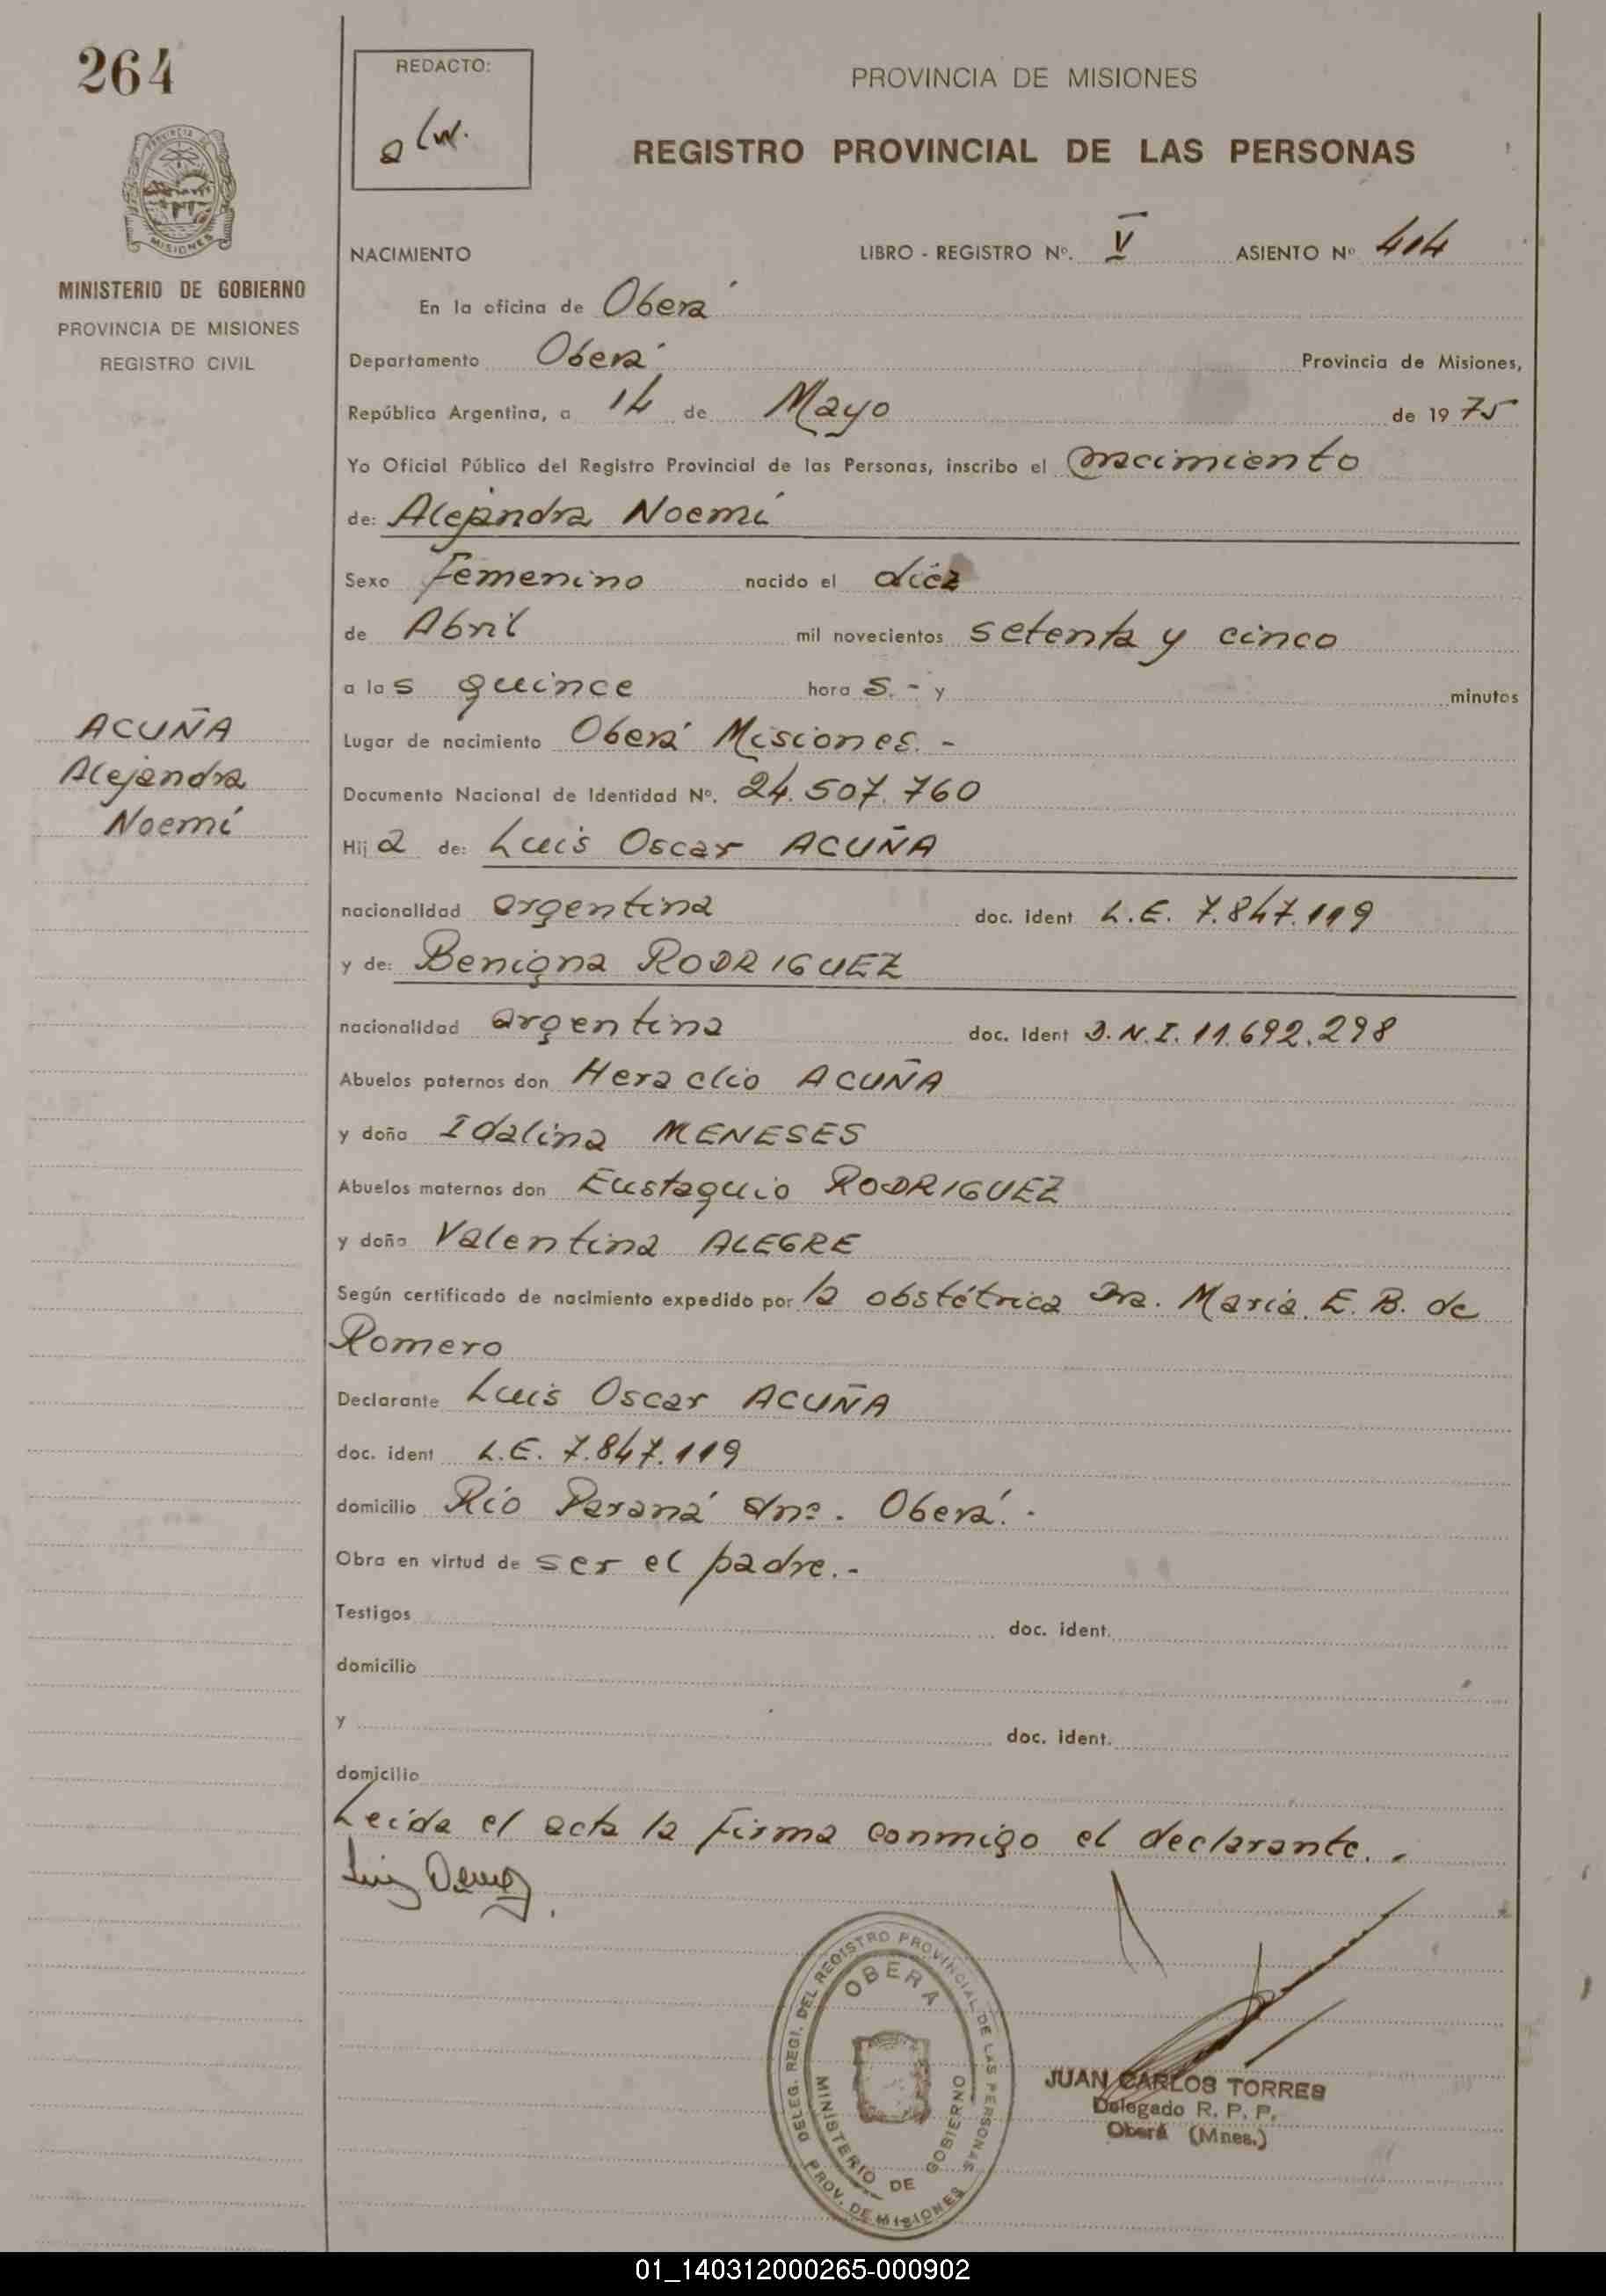 264
REDACTO:
PROVINCIA DE MISIONES
REGISTRO PROVINCIAL DE LAS PERSONAS
PROVINCIA
MISIONES
MINISTERIO DE GOBIERNO
PROVINCIA DE MISIONES
REGISTRO CIVIL
NACIMIENTO LIBRO - REGISTRO Nº. V ASIENTO Nº 414
En la oficina de Oberá
Departamento Oberá Provincia de Misiones,
República Argentina, a 14 de Mayo de 1975
Yo Oficial Público del Registro Provincial de las Personas, inscribo el nacimiento
de: Alejandra Noemí
Sexo Femenino nacido el diéz
de Abril mil novecientos setenta y cinco
a las quince horas.- y minutos
ACUÑA
Alejandra
Noemí
Lugar de nacimiento Oberá Misiones.-
Documento Nacional de Identidad Nº. 24.507.760
Hija de: Luis Oscar ACUÑA
nacionalidad argentina doc. ident L.E. 7.847.119
y de: Benigna RODRIGUEZ
nacionalidad argentina doc. Ident D.N.I. 11.692.298
Abuelos paternos don Heraclio ACUÑA
y doña Idalina MENESES
Abuelos maternos don Eustaquio RODRIGUEZ
y doña Valentina ALEGRE
Según certificado de nacimiento expedido por la obstétrica Dra. María E. B. de
Romero
Declarante Luis Oscar ACUÑA
doc. ident L.E. 7.847.119
domicilio Río Paraná s/nº. Oberá.-
Obra en virtud de ser el padre.-
Testigos doc. ident.
domicilio
y doc. ident.
domicilio
Leída el acta la firma conmigo el declarante.-
DELEG. REGI. DEL REGISTRO PROVINCIAL DE LAS PERSONAS
OBERA
MINISTERIO DE GOBIERNO
PROV. DE MISIONES
JUAN CARLOS TORRES
Delegado R. P. P.
Oberá (Mnes.)
01_140312000265-000902